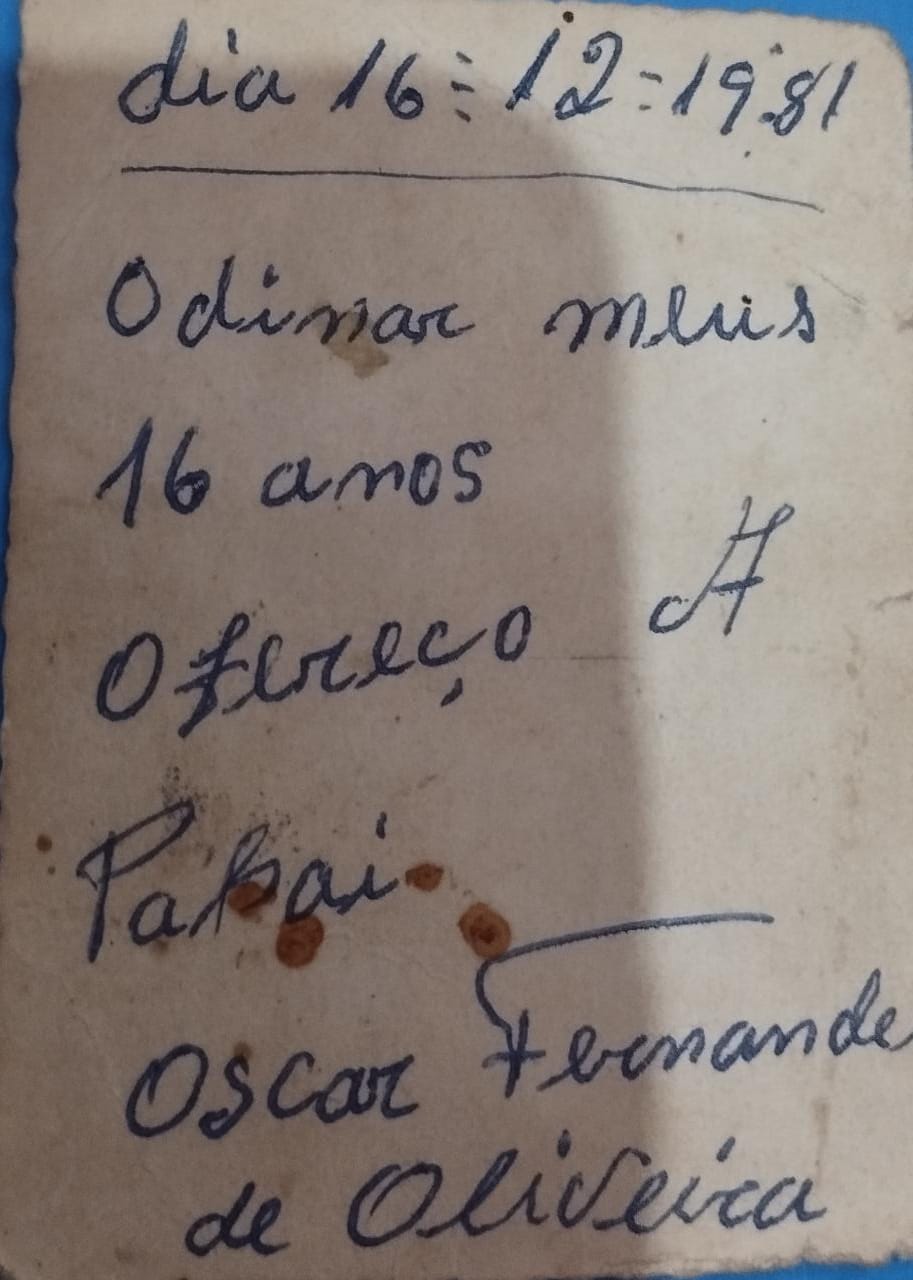 dia 16-12-1981
Odimar meus
16 anos
Ofereço A
Papai
Oscar Fernande
de Oliveira